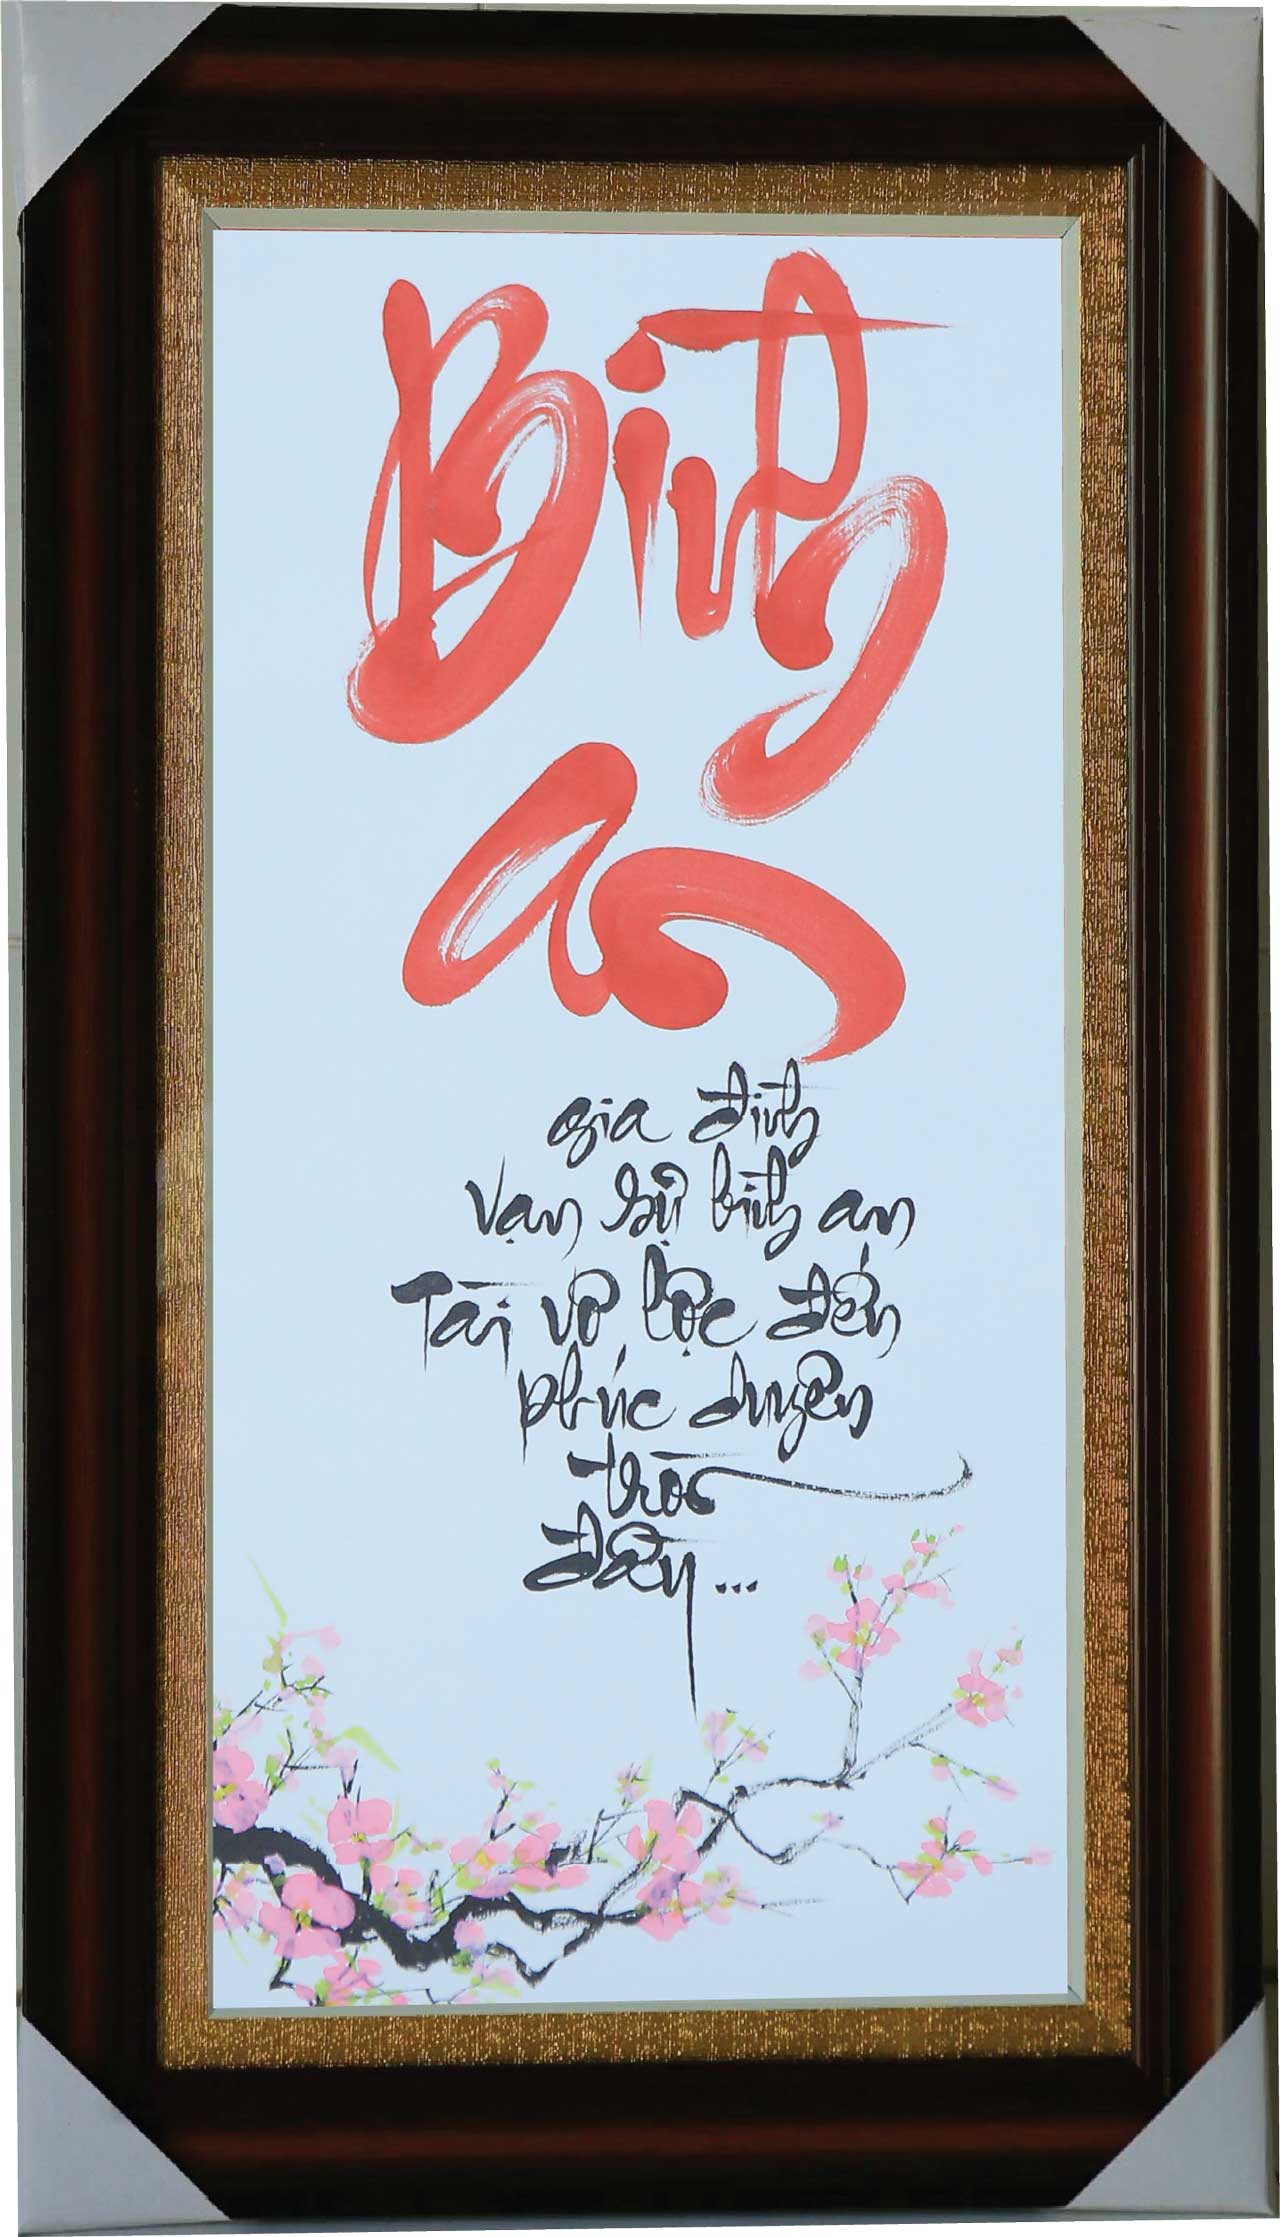 Bình
an
gia đình
Vạn sự bình an
Tài vô lộc đến
phúc duyên
tròn
đầy...